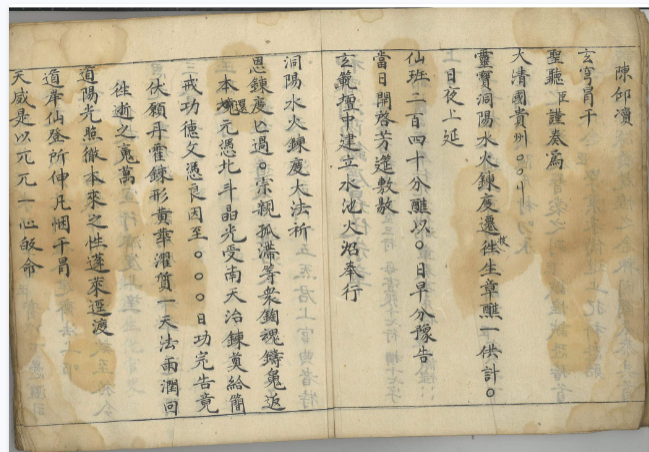 陳郤瀆
玄穹冒干
聖聽臣謹奏為
大清國貴州○○川
靈寶洞陽水火鍊度還往生章醮一供計○
日夜上延
仙班二百四十分醮以○日早分豫告
當日開啓芳筵敷敞
玄範壇中建立水池火沼奉行
洞陽水火鍊度大法祈
恩鍊度亡過○宗親孤滯等衆鉤魂鑄魄返
本還元憑北斗晶光受南天治鍊奠給簡
戒功德文憑良因至○○○日功完告竟
伏願丹霍鍊形黃華濯質一天法雨潤同
往逝之寃萬
道陽光照徹本來之性蓬來逕渡
道岸仙登所伸凡悃干冒
天威是以兀兀一心皈命